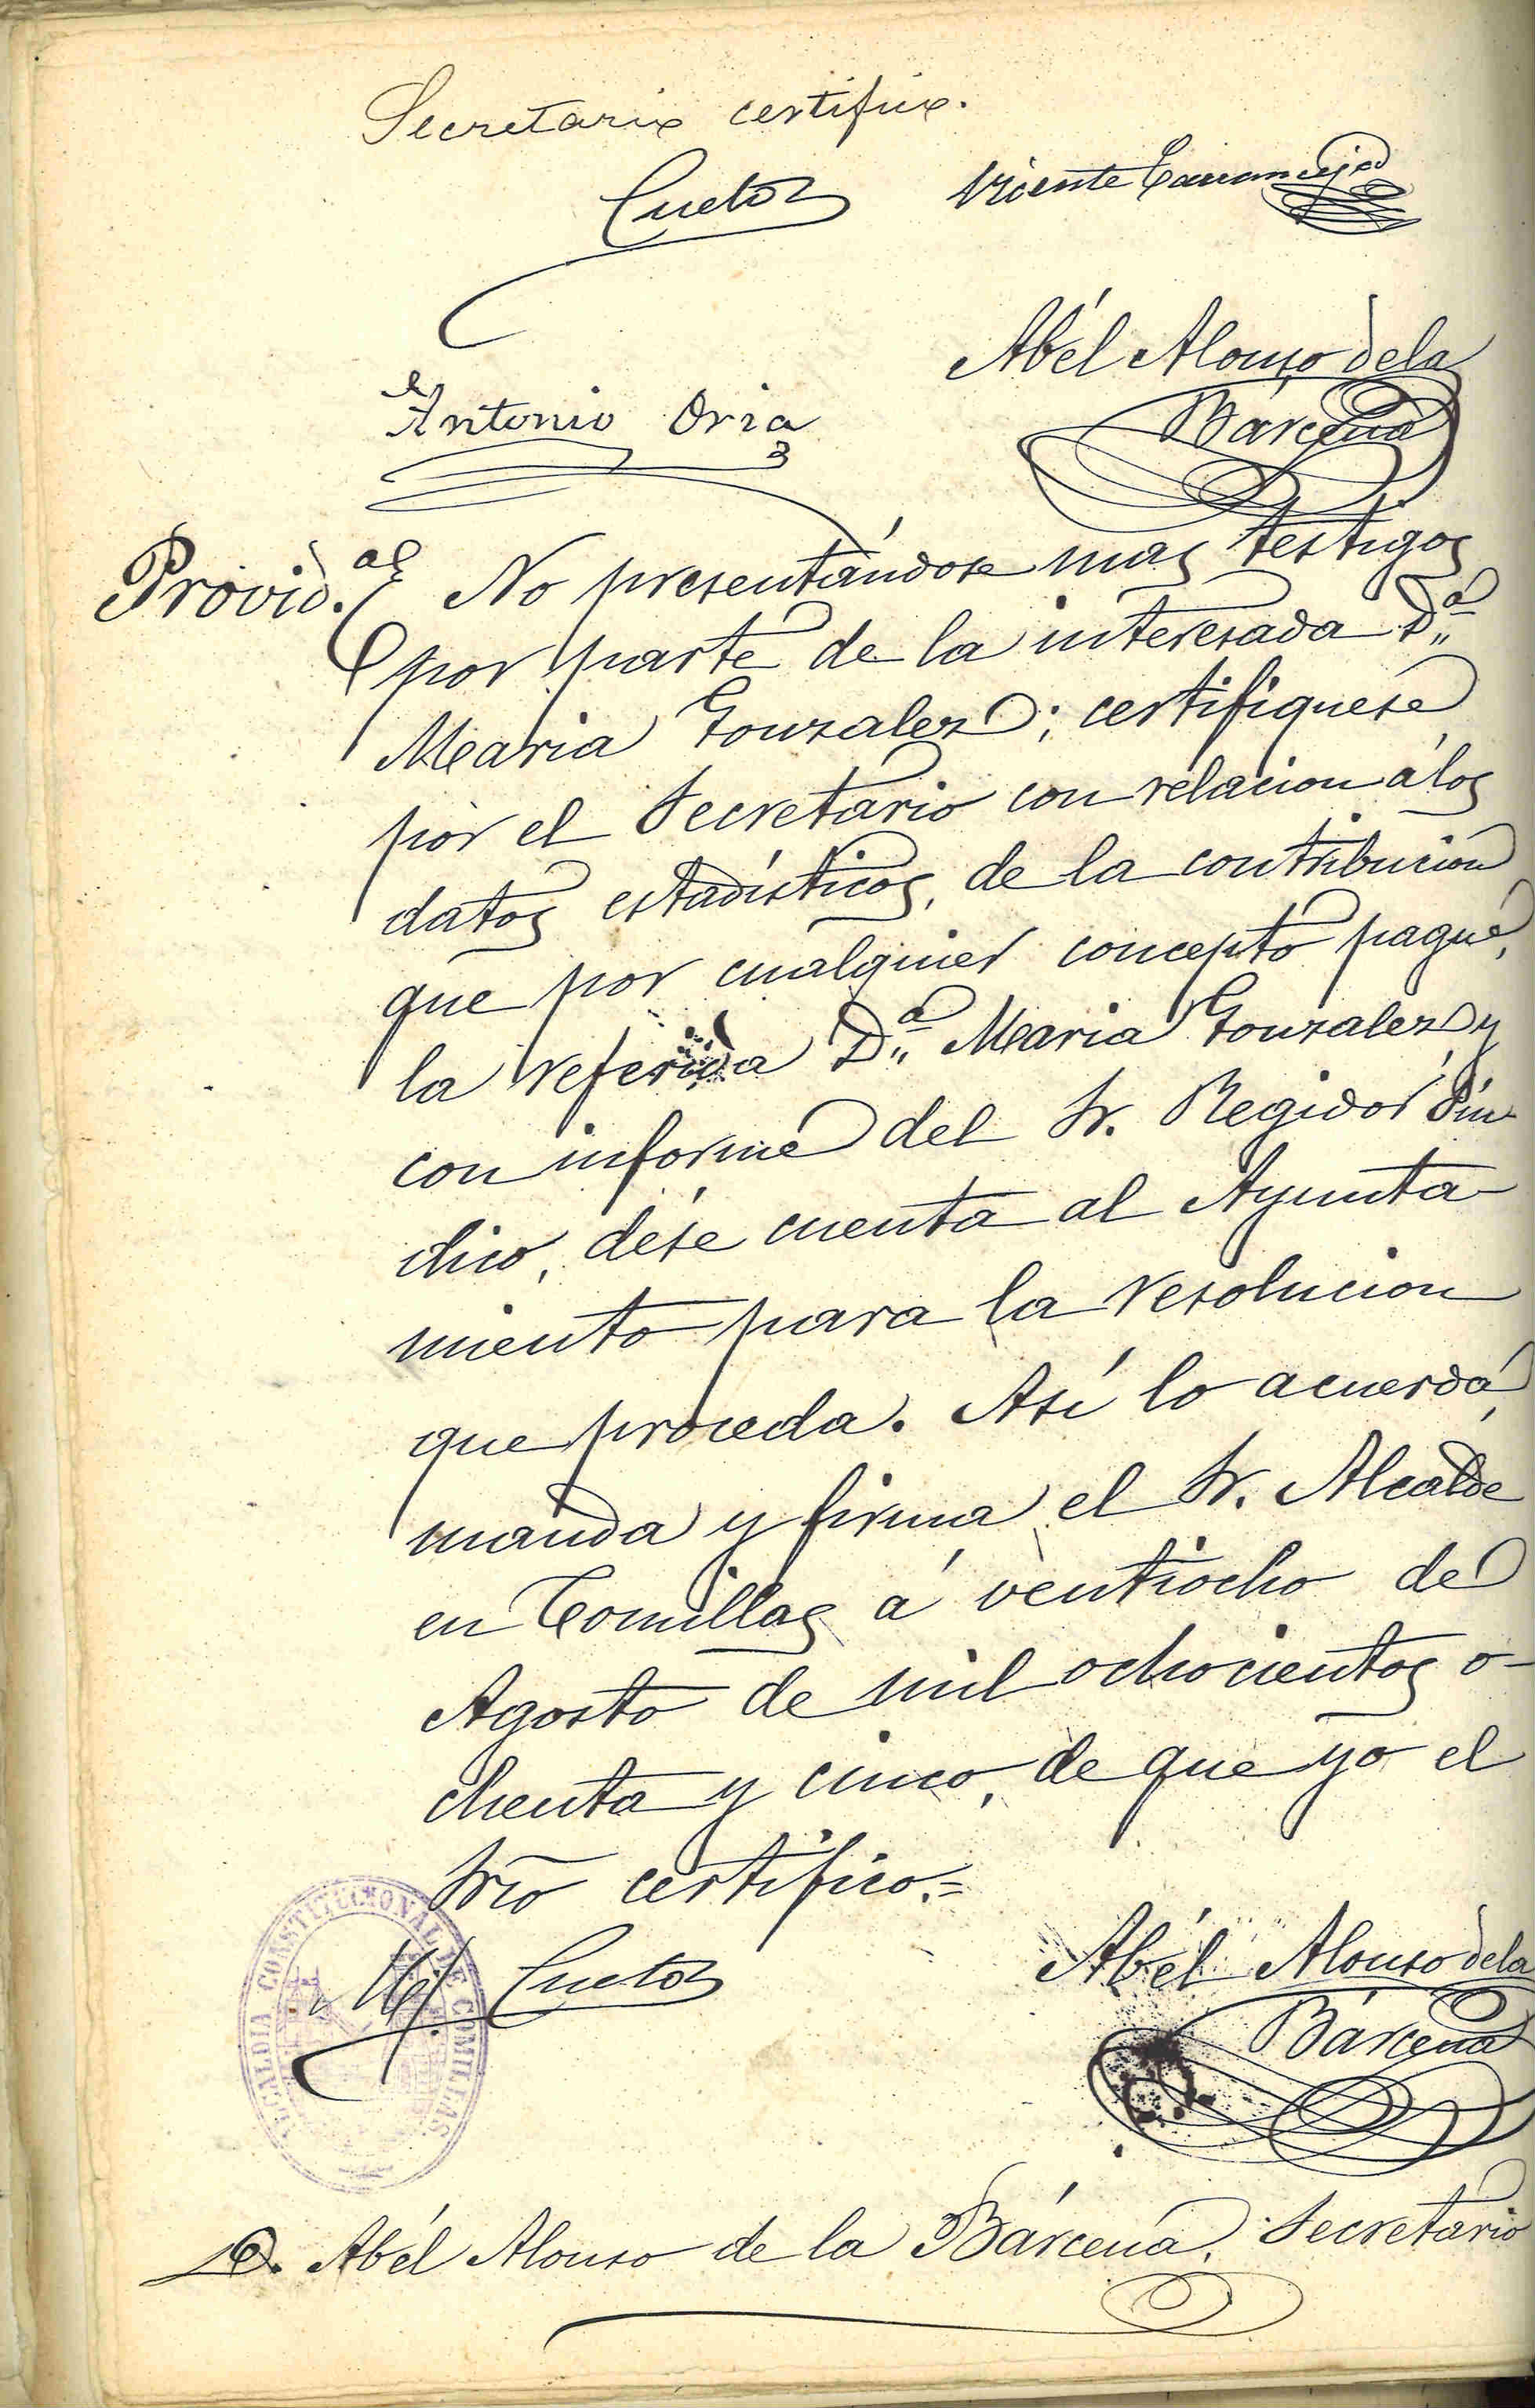 Secretario certifico.
Cueto
Vicente
Abél Alonso de la
Bárcena
Antonio Oria
Provid.al No presentándose mas testigos
por parte de la interesada D.a
Maria Gonzalez; certifiquese
por el Secretario con relacion á los
datos estadísticos, de la contribucion
que por cualquier concepto pague,
la referida D.a Maria Gonzalez y
con informe del Sr. Regidor Sín-
dico, dése cuenta al Ayunta-
miento para la resolucion
que proceda. Así lo acuerda,
manda y firma el Sr. Alcalde
en Comillas á ventiocho de
Agosto de mil ochocientos o-
chenta y cinco, de que yo el
Srio certifico.=
ALCALDIA CONSTITUCIONAL DE COMILLAS
Cueto
Abél Alonso de la
Bárcena
D. Abél Alonso de la Bárcena, Secretario